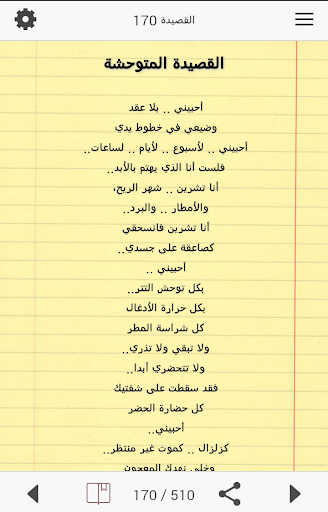 القصيدة 170
القصيدة المتوحشة
أحبيني .. بلا عقد
وضيعي في خطوط يدي
أحبيني .. لأسبوع .. لأيام .. لساعات..
فلست أنا الذي يهتم بالأبد..
أنا تشرين .. شهر الريح،
والأمطار .. والبرد..
أنا تشرين فانسحقي
كصاعقة على جسدي..
أحبيني ..
بكل توحش التتر..
بكل حرارة الأدغال
كل شراسة المطر
ولا تبقي ولا تذري..
ولا تتحضري أبدا..
فقد سقطت على شفتيك
كل حضارة الحضر
أحبيني..
كزلزال .. كموت غير منتظر..
وخلي نهدك المعجون
170 / 510